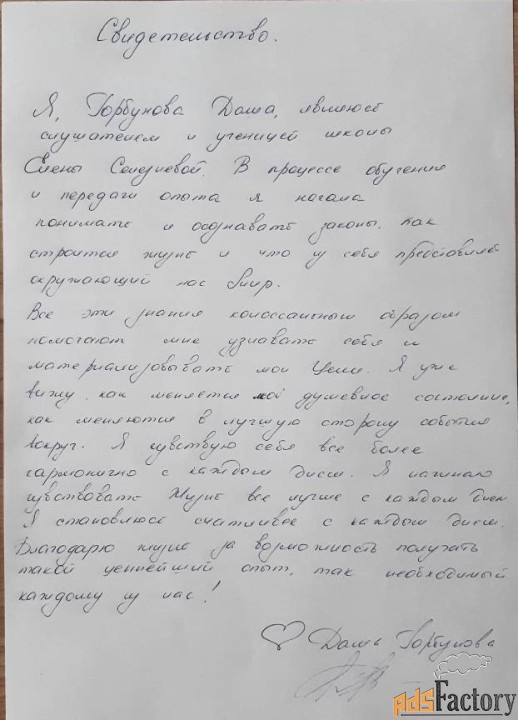 Свидетельство.
Я, Горбунова Даша, являюсь
слушателем и ученицей школы
Елены Селезневой. В процессе обучения
и передачи опыта я начала
понимать и осознавать законы, как
строится жизнь и что из себя представляет
окружающий нас Мир.
Все эти знания колоссальным образом
помогают мне узнавать себя и
материализовывать мои Цели. Я уже
вижу, как меняется мой душевное состояние,
как меняются в лучшую сторону события
вокруг. Я чувствую себя все более
гармонично с каждым днем. Я начинаю
чувствовать Жизнь все лучше с каждым днем
Я становлюсь счастливее с каждым днем.
Благодарю жизнь за возможность получать
такой ценнейший опыт, так необходимый
каждому из нас!
Даша Горбунова
AdsFactory